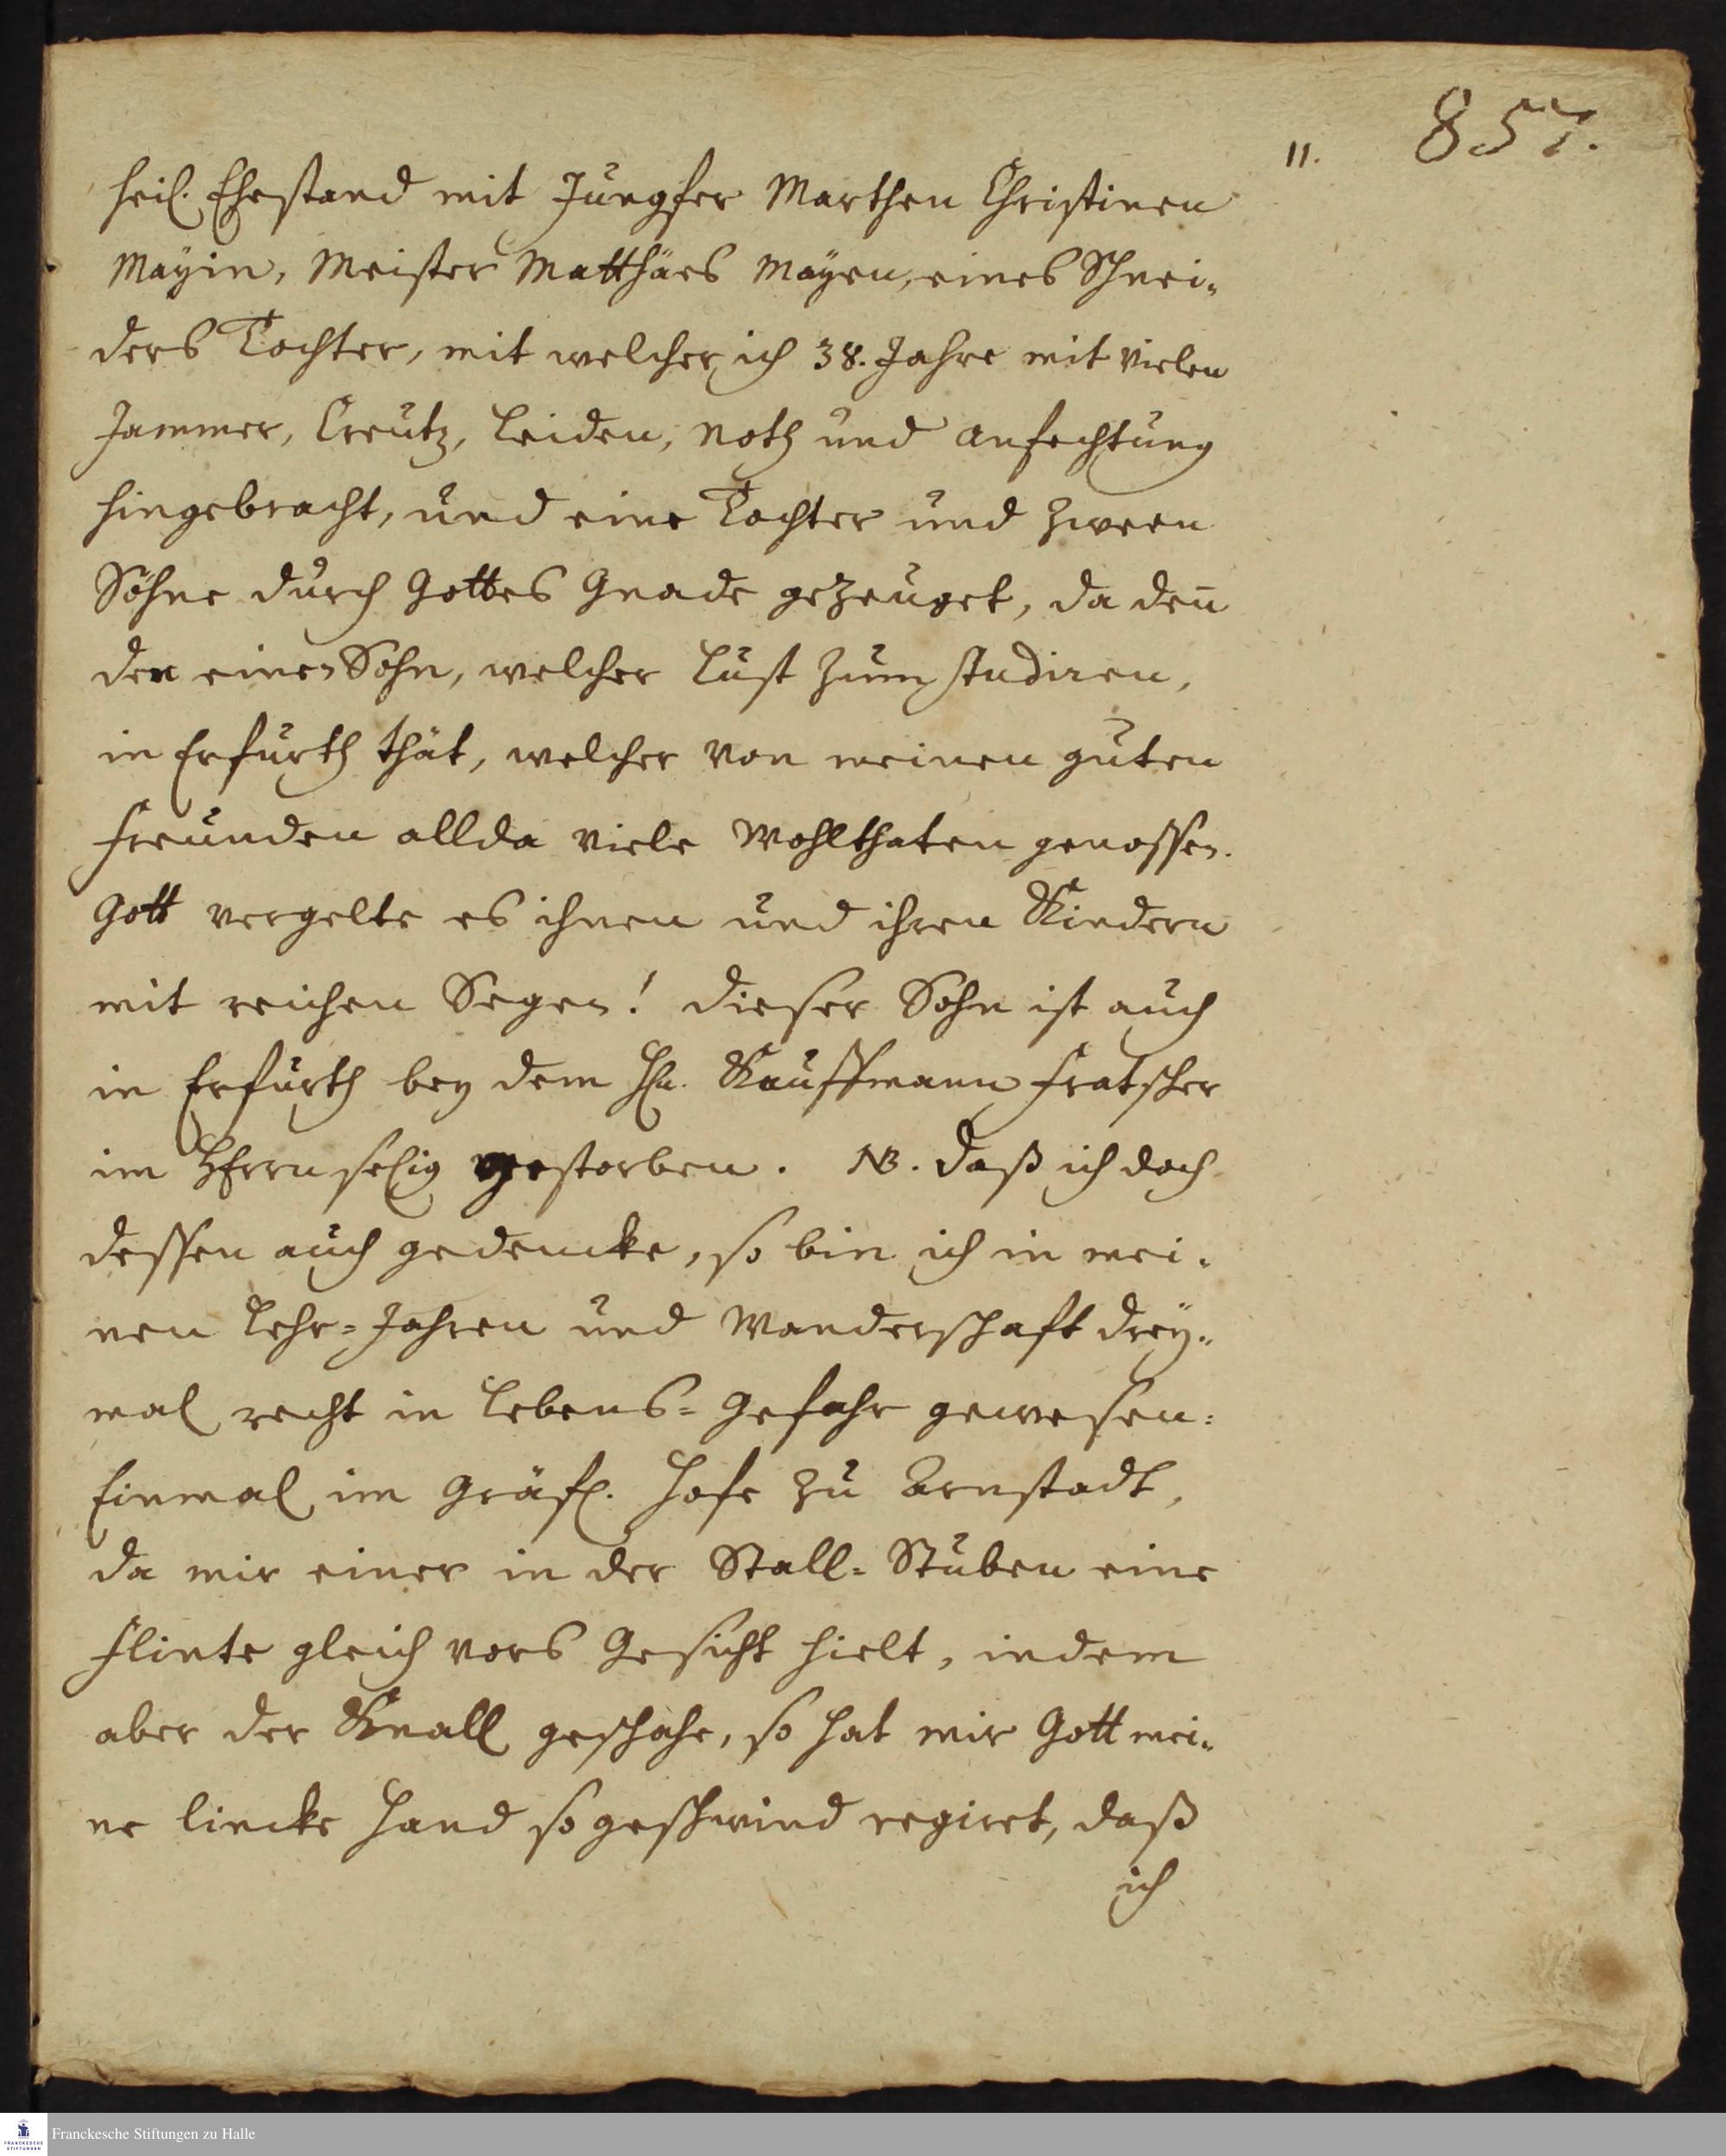 11.
857.
heil. Ehestand mit Jungfer Marthen Christinen
Mayin, Meister Matthäes Mayen, eines Schnei-
ders Tochter, mit welcher ich 38. Jahre mit vielen
Jammer, Creutz, Leiden, Noth und Anfechtung
hingebracht, und eine Tochter und zween
Söhne durch Gottes Gnade gezeuget, da den̄
den einen Sohn, welcher Lust zum studiren,
in Erfurth thät, welcher von meinen guten
Freunden allda viele Wohlthaten genossen.
Gott vergelte es ihnen und ihren Kindern
mit reichen Segen! Dieser Sohn ist auch
in Erfurth bey dem Hn. Kauffmann Fratscher
im HErrn selig gestorben. NB. Daß ich doch
dessen auch gedencke, so bin ich in mei-
nen Lehr-Jahren und Wanderschaft drey-
mal recht in Lebens-Gefahr gewesen:
Einmal im Gräfl. Hofe zu Arnstadt,
da mir einer in der Stall-Stuben eine
Flinte gleich vors Gesicht hielt, indem
aber der Knall geschahe, so hat mir Gott mei-
ne lincke Hand so geschwind regiret, daß
ich
Franckesche Stiftungen zu Halle
FRANCKESCHE
STIFTUNGEN